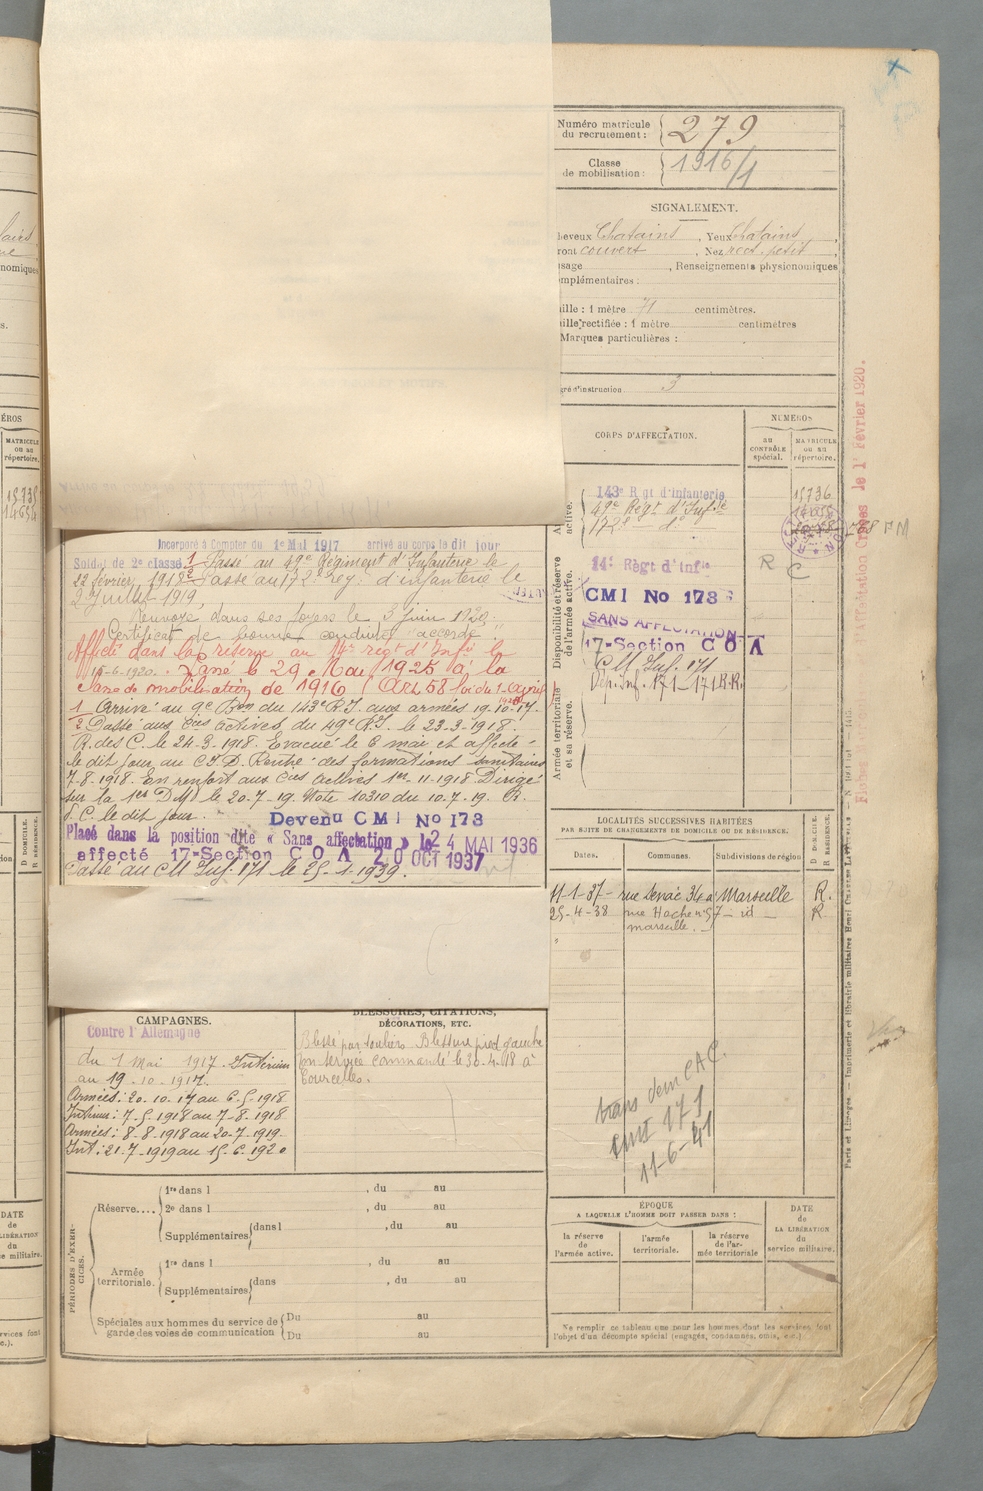 Numéro matricule
du recrutement : 279
Classe
de mobilisation : 1916/1
SIGNALEMENT.
heveux Chatains, Yeux Chatains,
ront couvert, Nez rect. petit,
isage , Renseignements physionomiques
omplémentaires :
aille : 1 mètre 71 centimètres.
aille rectifiée : 1 mètre centimètres
Marques particulières :
gré d'instruction 3
CORPS D'AFFECTATION.
NUMÉROS
au
CONTRÔLE
spécial.
MATRICULE
ou au
répertoire.
active.
143e Rgt d'infanterie 15736
49e Régt d'Infie
172e d°
Disponibilité et réserve
de l'armée active.
14e Règt d'infie
R C
CMI No 173
SANS AFFECTATION
17-Section COA
CM Inf. 171
Dép. inf. 171 - 171 R.R.
Armée territoriale
et sa réserve.
Affectation Croses le 1r Février 1920.
ÉROS
MATRICULE
ou au
répertoire.
15735
14654
Incorporé à Compter du 1e Mai 1917 arrivé au corps le dit jour
Soldat de 2e classe. 1 Passé au 49e Régiment d'Infanterie le
22 février 1918. 2 Passé au 172e rég. d'infanterie le
2 Juillet 1919,
Renvoyé dans ses foyers le 3 juin 1920.
Certificat de bonne conduite "accordé"
Affecté dans la réserve au 14e régt d'Infie le
15-6-1920. Passé le 29 Mai 1925 à la
classe de mobilisation de 1916 (Art. 58 loi du 1 Avril
1 Arrivé au 9e Bon du 143e R.I. aux armées 19.10.17.
2 Passé aux Cies actives du 49e R.I. le 23-3-1918.
R. des C. le 24-3-1918. Evacué le 6 mai et affecté
le dit jour au C.I.D. Rentré des formations sanitaires
7-8-1918. En renfort aux Cies actives 1er-11-1918. Dirigé
sur la 1er DMI le 20-7-19. Note 10310 du 10.7.19. R.
d. C. le dit jour.
Devenu CMI No 173
Placé dans la position dite « Sans affectation » le 24 MAI 1936
affecté 17-Section COA 20 OCT 1937
Passé au CM Inf. 171 le 25-1-1939.
LOCALITÉS SUCCESSIVES HABITÉES
PAR SUITE DE CHANGEMENTS DE DOMICILE OU DE RÉSIDENCE.
D DOMICILE.
R RÉSIDENCE.
Dates. Communes. Subdivisions de région
11-1-37- rue Senac 34 a Marseille R.
25-4-38 rue Hache n° 57 - id - R
marseille.
trans dem CAC.
CMI 171
11-6-41
CAMPAGNES.
Contre l'Allemagne
du 1 Mai 1917. Intérieur
au 19.10-1917.
Armées: 20.10.17 au 6-5-1918
Intérieur: 7-5-1918 au 7-8-1918
Armées: 8-8-1918 au 20-7-1919-
Int: 21-7-1919 au 15.6.1920
BLESSURES, CITATIONS,
DÉCORATIONS, ETC.
Blessé par souliers Blessure pied gauche
en service commandé le 30-4-18 à
Courcelles.
PÉRIODES D'EXER-
CICES.
Réserve....
1re dans l , du au
2e dans l , du au
Supplémentaires dans l , du au
Armée
territoriale.
1re dans l , du au
Supplémentaires dans , du au
Spéciales aux hommes du service de
garde des voies de communication
Du au
Du au
ÉPOQUE
A LAQUELLE L'HOMME DOIT PASSER DANS :
la réserve
de
l'armée active.
l'armée
territoriale.
la réserve
de l'ar-
mée territoriale
DATE
de
LA LIBÉRATION
du
service militaire.
Ne remplir ce tableau que pour les hommes dont les services font
l'objet d'un décompte spécial (engagés, condamnés, omis, etc.)
Paris et Limoges. — Imprimerie et librairie militaires Henri CHARLES-LAVAUZELLE